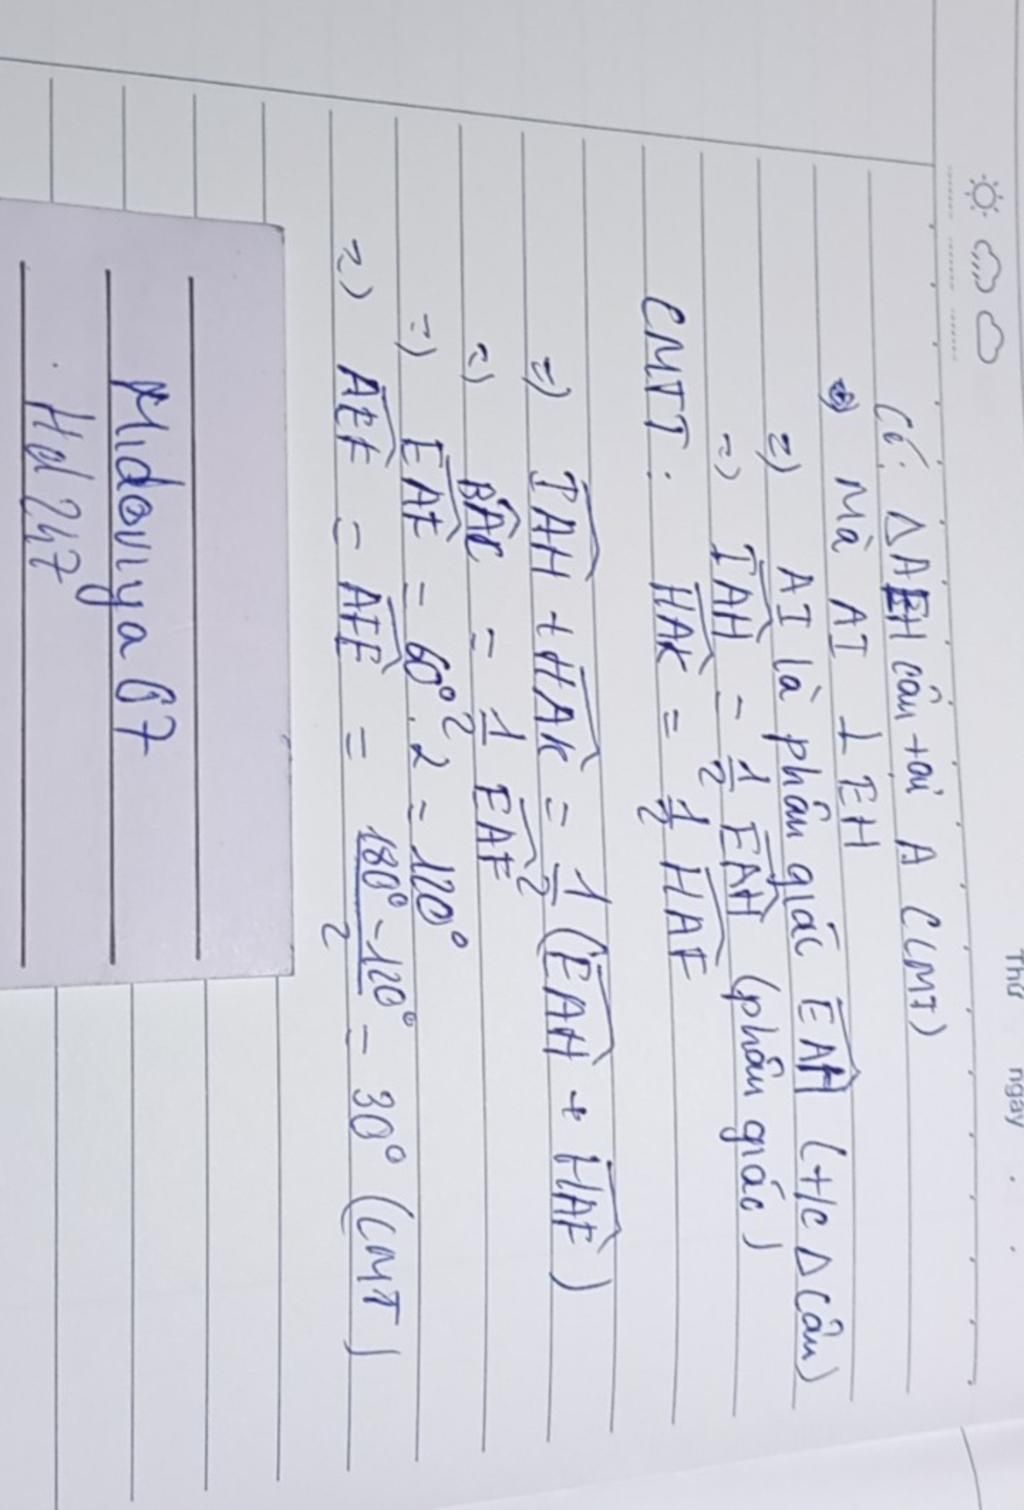 Thứ ngày
Có: ΔAEH cân tại A (CMT)
=) Mà AI ⊥ EH
=) AI là phân giác EAH (t/c Δ cân)
=) IAH = 1/2 EAH (phân giác)
CMTT: HAK = 1/2 HAF
=) IAH + HAK = 1/2 (EAH + HAF)
=) BAC = 1/2 EAF
=) EAF = 60° . 2 = 120°
=) AEF = AFE = 180° - 120° / 2 = 30° (CMT)
Midoriya 07
Hd 247